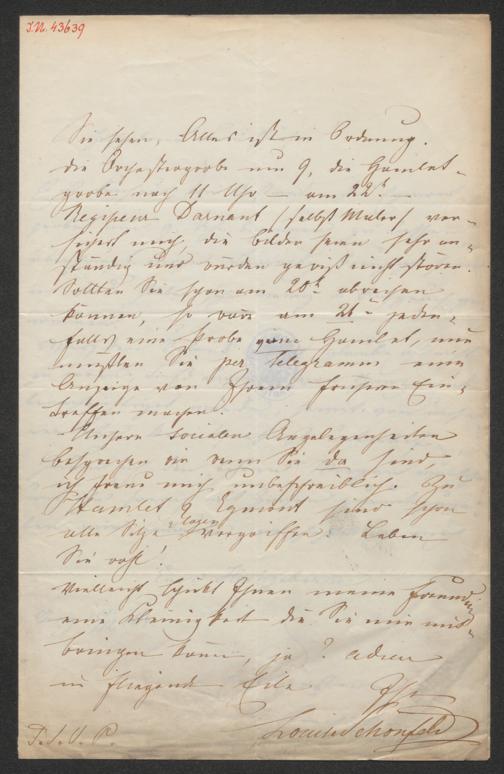 I.N. 43639
Sie sehen, Alles ist in Ordnung.
die Orchesterprobe um 9, die Hamlet-
probe nach 11 Uhr — am 22t. —
Regisseur Darnaut (selbst Maler) ver-
sichert mich, die Bilder seien sehr an-
ständig und würden gewiß nicht stören.
Sollten Sie schon am 20t abreisen
können, so wäre am 21t jeden-
falls eine Probe zum Hamlet, nur
müßten Sie per Telegramm eine
Anzeige von Ihrem früheren Ein-
treffen machen.
Unsere socialen Angelegenheiten
besprechen wir wenn Sie da sind,
ich freue mich unbeschreiblich. Zu
Hamlet & Egmont sind schon
alle Sitze & Logen vergriffen. Leben
Sie wohl!
Vielleicht schickt Ihnen meine Freundin
eine Kleinigkeit die Sie mir mit-
bringen können, ja? Adieu
in fliegender Eile Ihre
Louise Schönfeld
T. S. V. P.